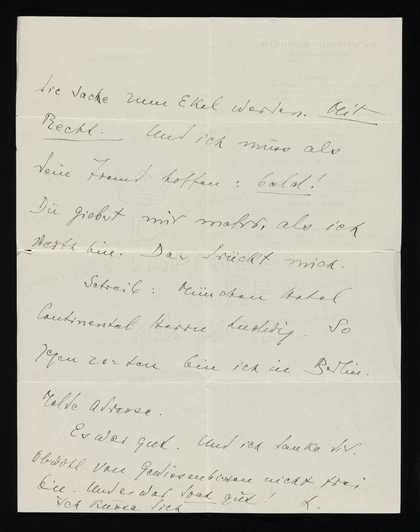 die Sache zum Ekel werden. Mit
Recht. Und ich muss als
Dein Freund hoffen: bald!
Du giebst mir mehr, als ich
werth bin. Das drückt mich.
Schreib: München Hotel
Continental Herrn
So
gegen zehnten bin ich in Berlin.
Melde Adresse.
Es war gut. Und ich danke dir.
Obwohl von Gewissensbissen nicht frei
bin. Und es war doch gut!
Ich küsse Dich